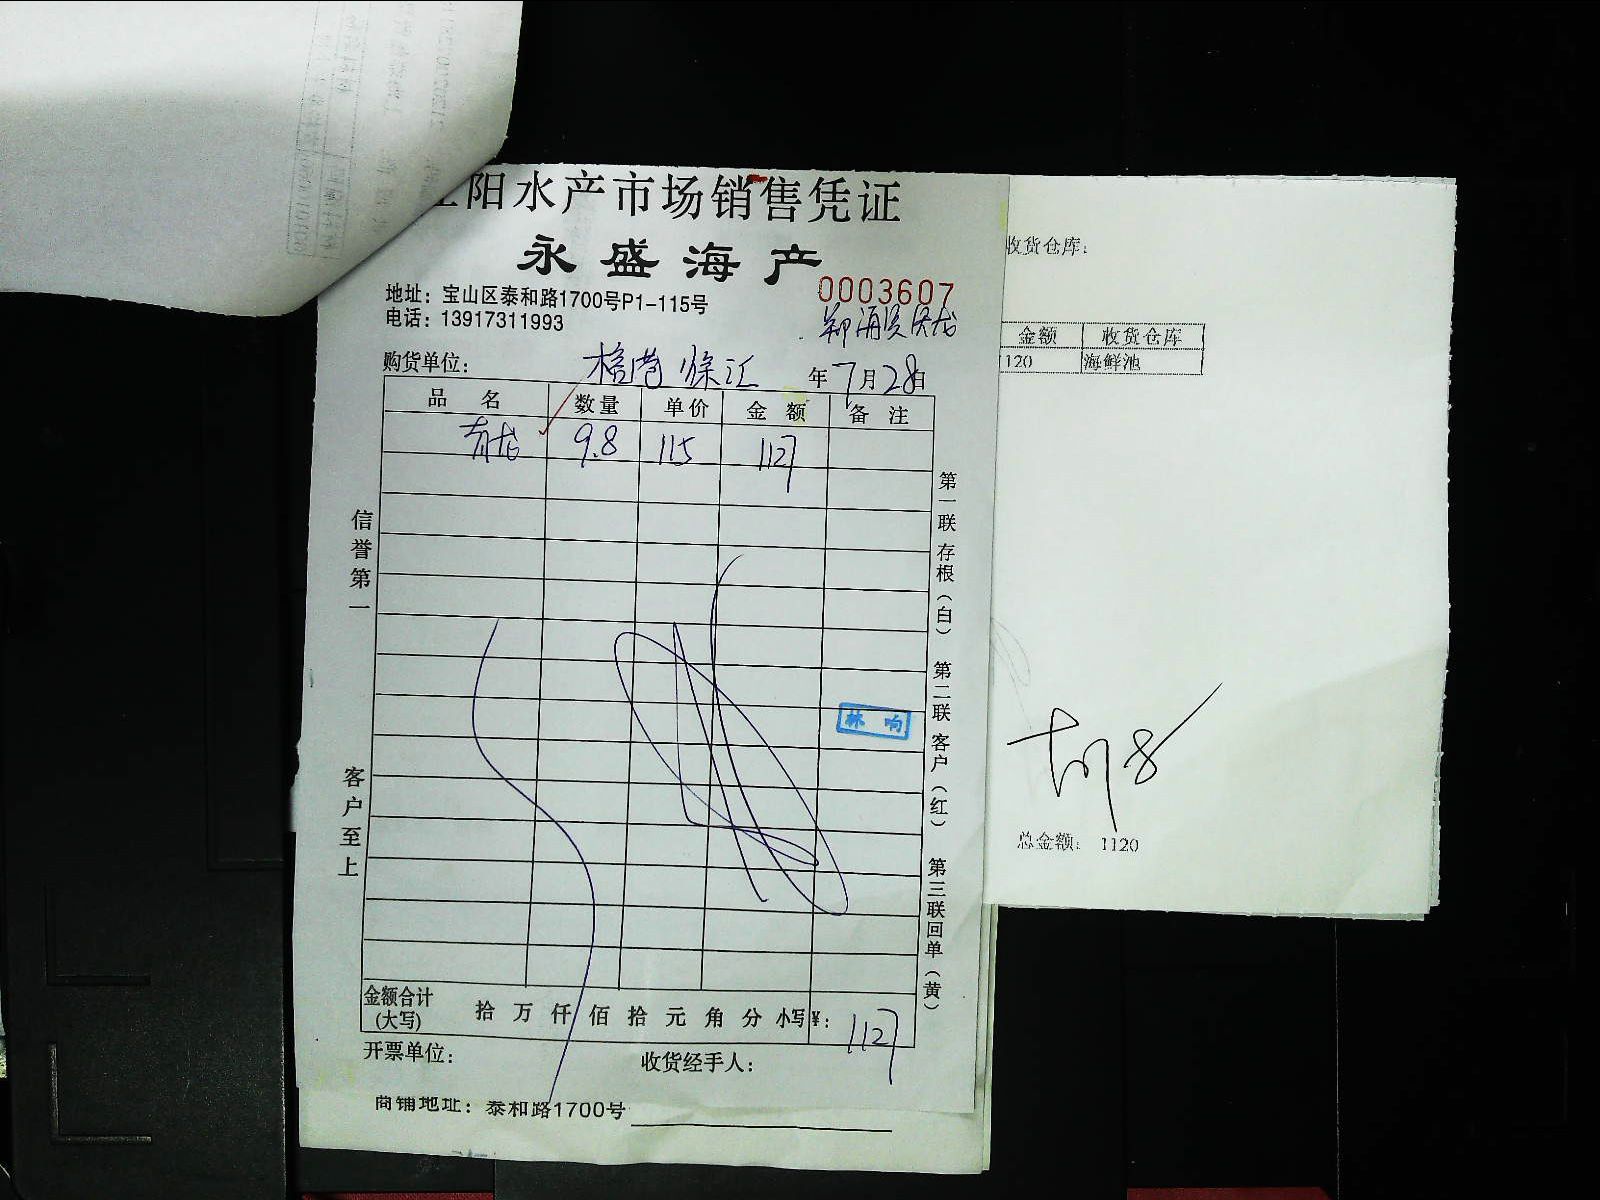 阳水产市场销售凭证
永盛海产
地址：宝山区泰和路1700号P1-115号
0003607
电话：13917311993
购货单位： 徐汇 年7月28日
品名 数量 单价 金额 备注
青龙 9.8 115 1127
信誉第一
客户至上
第一联存根（白） 第二联客户（红） 第三联回单（黄）
林响
金额合计(大写) 拾万仟佰拾元角分 小写¥：1127
开票单位： 收货经手人：
商铺地址：泰和路1700号
收货仓库：
金额 收货仓库
1120 海鲜池
总金额： 1120